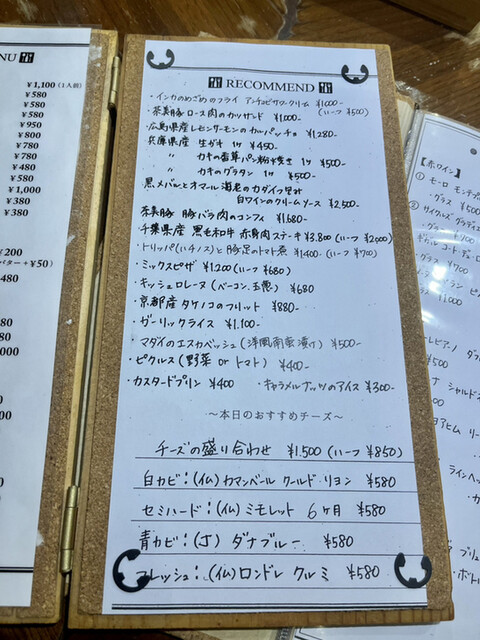 NU
¥1,100(1人前)
¥580
¥580
¥950
¥800
¥780
¥780
¥480
¥580
¥1,000
¥380
¥380
¥200
バター+¥50)
RECOMMEND
・インカのめざめのフライ アンチョビサワークリーム ¥1000-
・茶美豚 ロース肉のカツサンド ¥1,000- (ハーフ ¥500)
広島県産レモンサーモンのカルパッチョ ¥1,280-
兵庫県産 生ガキ 1ヶ ¥450-
〃 カキの香草パン粉焼き 1ヶ ¥500-
〃 カキのグラタン 1ヶ ¥500-
黒メバルとオマール海老のカダイフ包み
白ワインのクリームソース ¥2,500-
茶美豚 豚バラ肉のコンフィ ¥1,680-
・千葉県産 黒毛和牛 赤身肉ステーキ ¥3,800(ハーフ ¥2,000)
・トリッパ(ハチノス)と豚足のトマト煮 ¥1,400-(ハーフ ¥700)
・ミックスピザ ¥1,200(ハーフ ¥680)
・キッシュロレーヌ(ベーコン、玉葱) ¥680
・京都産タケノコのフリット ¥880-
・ガーリックライス ¥1,100-
マダイのエスカベッシュ(洋風南蛮漬け) ¥500-
・ピクルス(野菜 or トマト) ¥400-
・カスタードプリン ¥400 ・キャラメルナッツのアイス ¥300-
～本日のおすすめチーズ～
チーズの盛り合わせ ¥1,500(ハーフ ¥850)
白カビ:(仏)カマンベール クールド リヨン ¥580
セミハード:(仏)ミモレット 6ヶ月 ¥580
青カビ:(デ)ダナブルー ¥580
フレッシュ:(仏)ロンドレ クルミ ¥580
【赤ワイン】
① モーロ モンテプ
グラス ¥500
グラス ¥700